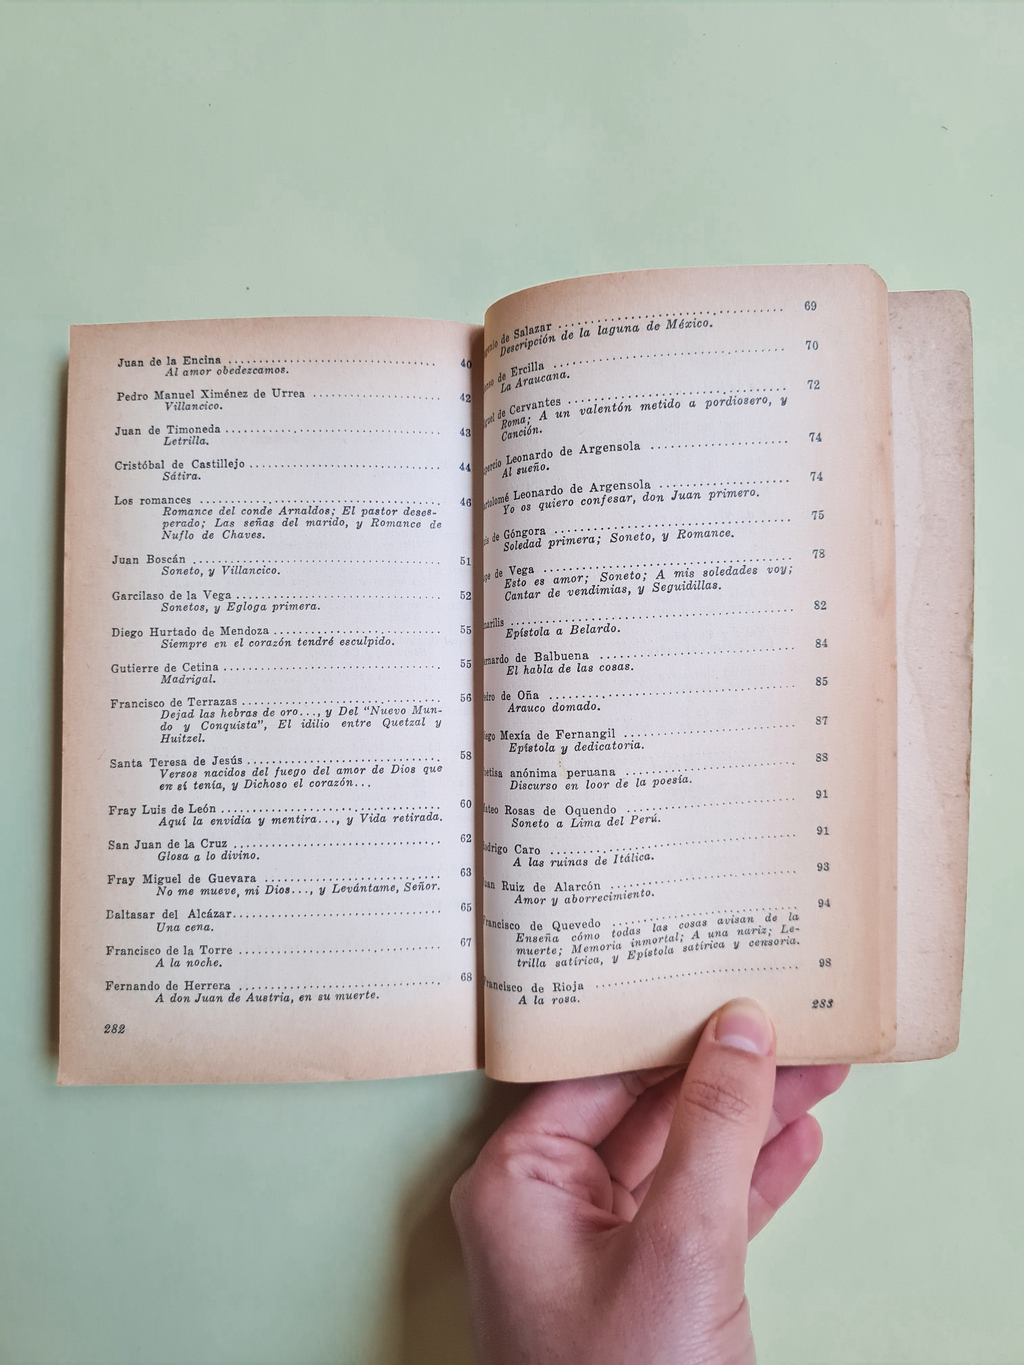 Juan de la Encina .................................. 40
Al amor obedezcamos.
Pedro Manuel Ximénez de Urrea ..................... 42
Villancico.
Juan de Timoneda .................................. 43
Letrilla.
Cristóbal de Castillejo .............................. 44
Sátira.
Los romances ...................................... 46
Romance del conde Arnaldos; El pastor deses-
perado; Las señas del marido, y Romance de
Nuflo de Chaves.
Juan Boscán ....................................... 51
Soneto, y Villancico.
Garcilaso de la Vega ................................ 52
Sonetos, y Egloga primera.
Diego Hurtado de Mendoza .......................... 55
Siempre en el corazón tendré esculpido.
Gutierre de Cetina .................................. 55
Madrigal.
Francisco de Terrazas ............................... 56
Dejad las hebras de oro..., y Del "Nuevo Mun-
do y Conquista", El idilio entre Quetzal y
Huitzel.
Santa Teresa de Jesús ............................... 58
Versos nacidos del fuego del amor de Dios que
en sí tenía, y Dichoso el corazón...
Fray Luis de León .................................. 60
Aquí la envidia y mentira..., y Vida retirada.
San Juan de la Cruz ................................ 62
Glosa a lo divino.
Fray Miguel de Guevara ............................ 63
No me mueve, mi Dios..., y Levántame, Señor.
Baltasar del Alcázar................................. 65
Una cena.
Francisco de la Torre ............................... 67
A la noche.
Fernando de Herrera ................................ 68
A don Juan de Austria, en su muerte.
282
de Salazar .................................. 69
Descripción de la laguna de México.
de Ercilla .................................. 70
La Araucana.
de Cervantes .................................. 72
Roma; A un valentón metido a pordiosero, y
Canción.
Leonardo de Argensola ....................... 74
Al sueño.
Leonardo de Argensola ....................... 74
Yo os quiero confesar, don Juan primero.
de Góngora .................................. 75
Soledad primera; Soneto, y Romance.
de Vega .................................. 78
Esto es amor; Soneto; A mis soledades voy;
Cantar de vendimias, y Seguidillas.
.................................. 82
Epístola a Belardo.
de Balbuena .................................. 84
El habla de las cosas.
de Oña .................................. 85
Arauco domado.
Mexía de Fernangil ........................... 87
Epístola y dedicatoria.
anónima peruana ........................... 88
Discurso en loor de la poesía.
Rosas de Oquendo ........................... 91
Soneto a Lima del Perú.
Caro .................................. 91
A las ruinas de Itálica.
Ruiz de Alarcón ........................... 93
Amor y aborrecimiento.
Francisco de Quevedo ........................... 94
Enseña cómo todas las cosas avisan de la
muerte; Memoria inmortal; A una nariz; Le-
trilla satírica, y Epístola satírica y censoria.
Francisco de Rioja ........................... 98
A la rosa.
283